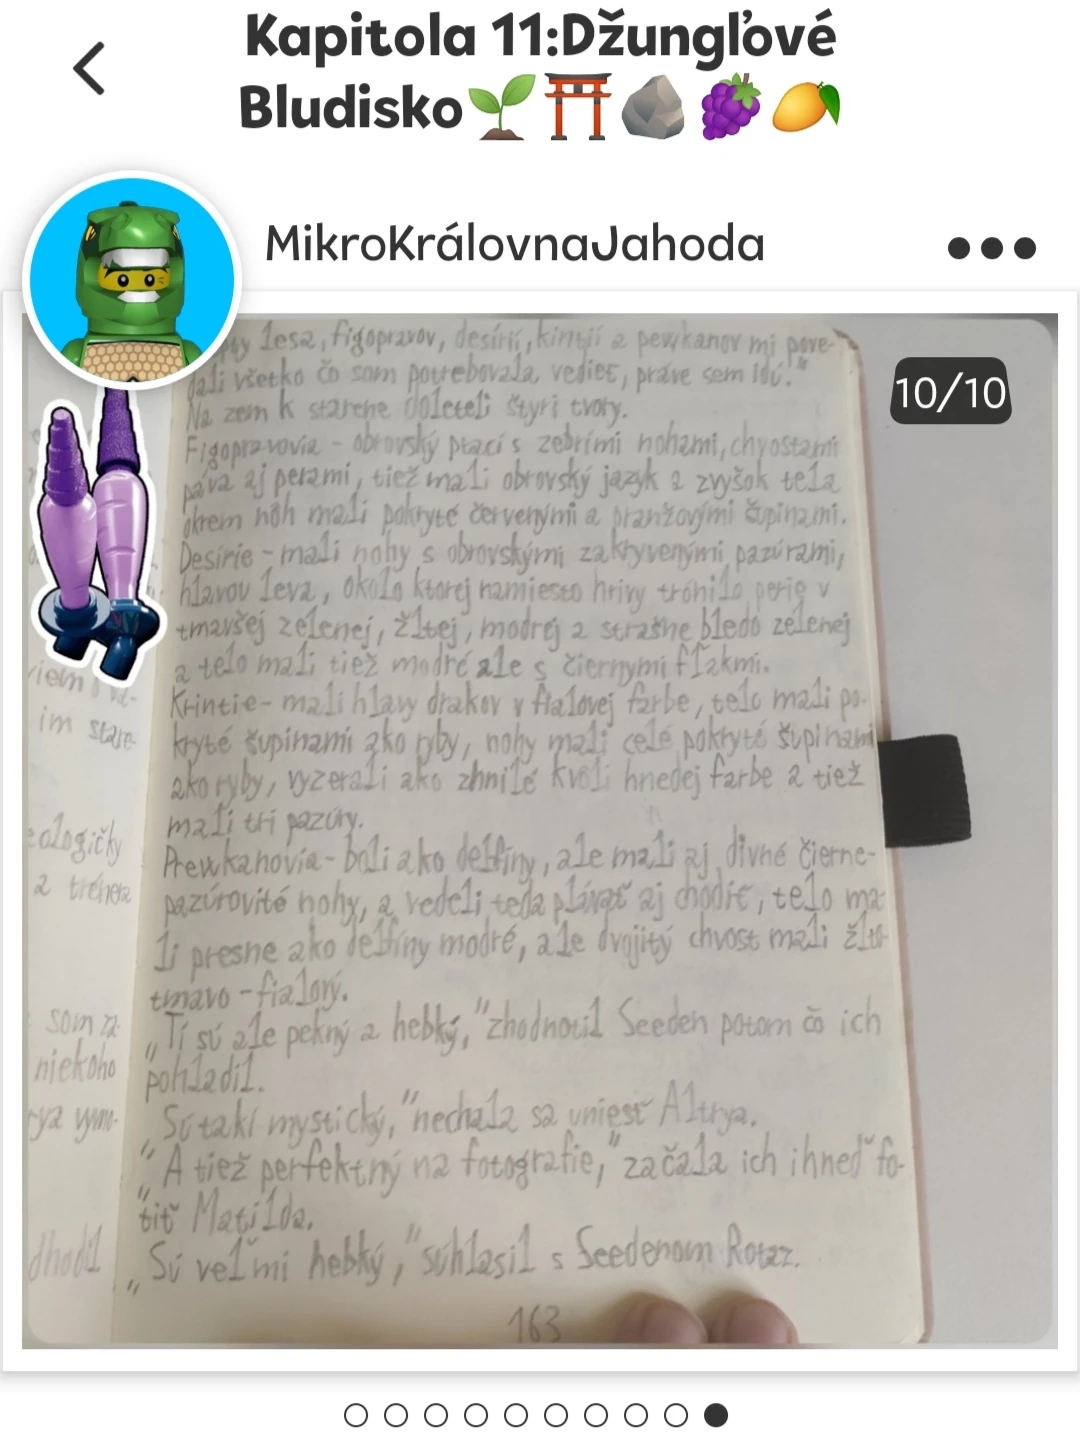 Kapitola 11:Džungľové
Bludisko
MikroKrálovnaJahoda
10/10
lesa, figopravov, desírií, kirntií a pewkanov mi pove-
dali všetko čo som potrebovala vedieť, práve sem idú."
Na zem k starene doleteli štyri tvory.
Figopravovia - obrovský ptací s zebrími nohami, chvostami
páva aj perami, tiež mali obrovský jazyk a zvyšok tela
okrem nôh mali pokryté červenými a oranžovými šupinami.
Desírie - mali nohy s obrovskými zakryvenými pazúrami,
hlavou leva, okolo ktorej namiesto hrivy trónilo perie v
tmavšej zelenej, žltej, modrej a strašne bledo zelenej
a telo mali tiež modré ale s čiernymi fľakmi.
Krintie - mali hlavy drakov v fialovej farbe, telo mali po-
kryté šupinami ako ryby, nohy mali celé pokryté šupinami
ako ryby, vyzerali ako zhnilé kvôli hnedej farbe a tiež
mali tri pazúry.
Prewkanovia - boli ako delfíny, ale mali aj divné čierne-
pazúrovité nohy, a vedeli teda plávať aj chodiť, telo ma-
li presne ako delfíny modré, ale dvojitý chvost mali žlto-
tmavo - fialový.
„Tí sú ale pekný a hebký," zhodnotil Seeden potom čo ich
pohladil.
„Sú takí mystický," nechala sa uniesť Altrya.
„A tiež perfektný na fotografie," začala ich ihneď fo-
tiť Matilda.
„Sú veľmi hebký," súhlasil s Seedenom Rotaz.
163
im stare-
eologičky
a trénera
som za-
niekoho
rya vymo-
dhodil